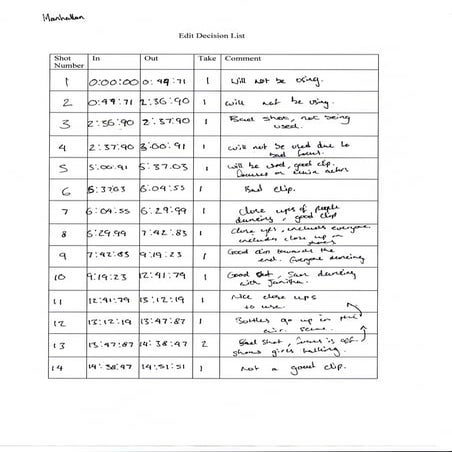 Manhattan
Edit Decision List
Shot Number In Out Take Comment
1 0:00:00 0:49:71 1 Will not be using.
2 0:49:71 2:36:90 1 will not be using.
3 2:36:90 2:37:90 1 Bad shot, not being
used.
4 2:37:90 3:00:91 1 will not be used due to
bad focus.
5 5:00.91 5:37.03 1 will be used, good clip.
focuses on main actors
6 5:3703 6:04:55 1 Bad clip.
7 6:04:55 6:29:99 1 Close ups of people
dancing, good clip
8 6:29.99 7:42:83 1 close ups, includes everyone
includes close up on
9 7:42:83 9:19:23 1 Good clip towards the
end. Everyone dancing
10 9:19:23 12:41:79 1 Good shot, Sam dancing
with
11 12:41:79 13:12:19 1 Nice close ups
to use.
12 13:12:19 13:47:87 1 Bottles go up in the
air. Scene.
13 13:47:87 14:38:47 2 Bad shot, focus is off
shows girls talking.
14 14:38:47 14:51:51 1 Not a good clip.